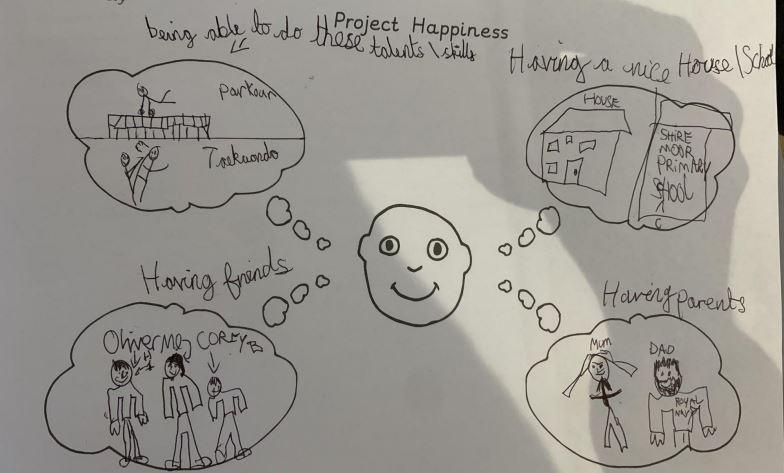 Project Happiness
being able to do these
talents\skills
Parkour
Taekwondo
Having a nice House\School
HOUSE
SHIRE
MOOR
PRIMARY
SHOOL
Having friends
Oliver Me COREY B
Having parents
Mum
DAD
ROYAL
NAVY